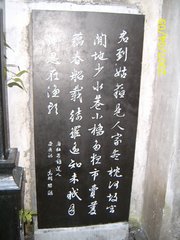 君到姑蘇見人家盡枕河故宮
閒地少水巷小橋多夜市賣菱
藕春船載綺羅遙知未眠月
鄉思在漁歌